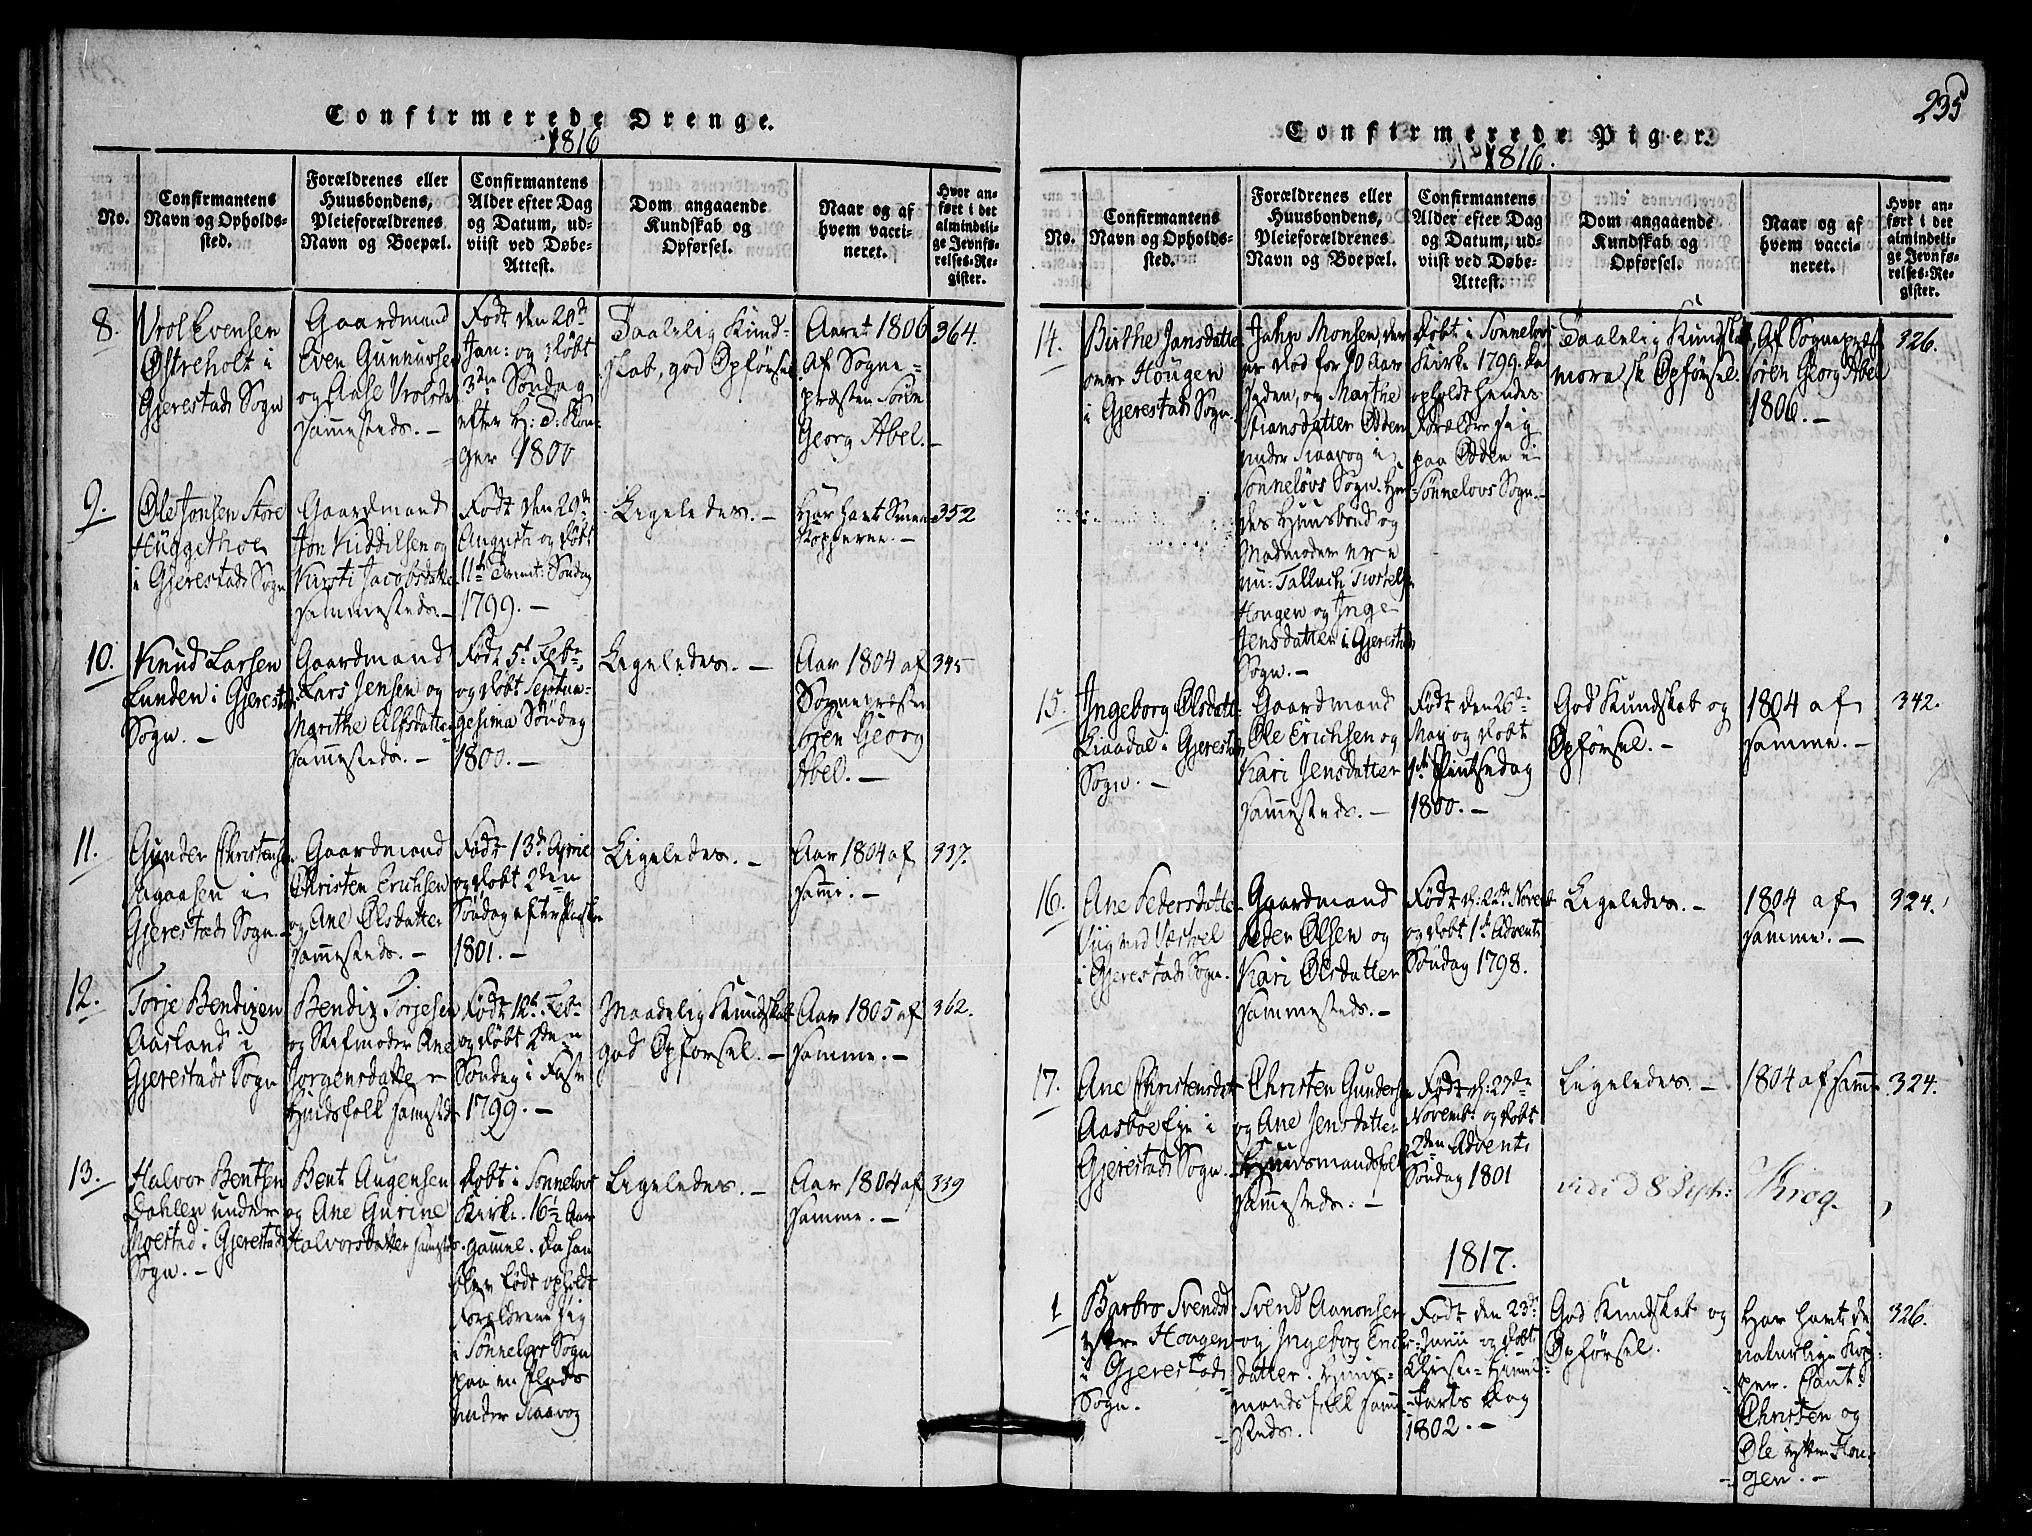 Confirmerede Drenge.
1816
No.
Confirmantens
Navn og Opholds-
sted.
Forældrenes eller
Huusbondens,
Pleieforældrenes
Navn og Boepæl.
Confirmantens
Alder efter Dag
og Datum, ud-
viist ved Døbe-
Attest.
Dom angaaende
Kundskab og
Opførsel.
Naar og af
hvem vacci-
neret.
Hvor an-
ført i det
almindeli-
ge Jevnfø-
relses-Re-
gister.
8.
Wrol Evensen
Østreholt i
Gjerestads Sogn
Gaardmand
Even Gunnursen
og Aase Wrolsda
sammesteds. –
Født den 20de
Jan: og døbt
3die Søndag
efter H: 3: Kon-
ger 1800
Taalelig Kund-
skab, god Opførsel
Aaret 1806
Af Sogne-
præsten Søren
Georg Abel. –
364.
9.
Ole Jonsen Store
i Gjerestads Sogn
Gaardmand
Jon Kiddelsen og
Kirsti Jacobsdatter
sammesteds. –
Født den 29de
Augusti og døbt
11te Trinit: Søndag
1799. –
Ligeledes. –
Har havt Smaae
Kopperne. –
352
10.
Knud Larsen
Lunden i Gjerestads
Sogn. –
Gaardmand
Lars Jensen og
Marithe Alfsdatter
sammesteds. –
Født 5te Feb.
og døbt Septua-
gesima Søndag
1800. –
Ligeledes. –
Aar 1804 af
Sognepræsten
Søren Georg
Abel. –
345
11.
Gunder Christensen
i
Gjerestads Sogn. –
Gaardmand
Christen Erichsen
og Ane Olsdatter
sammesteds. –
Født 13de April
og døbt 2den
Søndag efter Paaske
1801. –
Ligeledes. –
Aar 1804 af
samme. –
337.
12.
Torje Bendixen
Aasland i
Gjerestads Sogn
Bendix Torjesen
og Stifmoder Ane
Jørgensdatter
sammesteds
Født 12te Feb.
og døbt 2den
Søndag i Faste
1799. –
Maadelig Kundskab
god Opførsel. –
Aar 1805 af
samme. –
362.
13.
Halvor Bentsen
Dahlen under
Moestad i Gjerestads
Sogn. –
Bent Augensen
og Ane Gurine
Halvorsdatter sammesteds.
Døbt i Sønneløvs
Kirke. 16½ Aar
gammel. Da han
blev født opholdt
Forældrene sig
i Sønneløvs Sogn
paa en Plads
under Skaavog
Ligeledes. –
Aar 1804 af
samme. –
339
235
Confirmerede Piger.
1816.
No.
Confirmantens
Navn og Opholds-
sted.
Forældrenes eller
Huusbondens,
Pleieforældrenes
Navn og Boepæl.
Confirmantens
Alder efter Dag
og Datum, ud-
viist ved Døbe-
Attest.
Dom angaaende
Kundskab og
Opførsel.
Naar og af
hvem vacci-
neret.
Hvor an-
ført i det
almindeli-
ge Jevnfø-
relses-Re-
gister.
14.
Birthe Jansdatter
Hougen
i Gjerestads Sogn.
Jahn Monsen, der
er død for 10 Aar
siden, og Marthe
Stiansdatter Odden
under Skaavog i
Sønneløvs Sogn. Hen-
des Huusbond og
Madmoder ere
nu: Tallach
Hougen og Inge
Jensdatter i Gjerestads
Sogn. –
Døbt i Sønneløvs
Kirke 1799. Da
opholdt hendes
Forældre sig
paa Odden i
Sønneløvs Sogn. –
Taalelig Kundskab
moralsk Opførsel.
Af Sognepræst
Søren Georg Abel
1806. –
326.
15.
Ingeborg Olsdatter
i Gjerestads
Sogn. –
Gaardmand
Ole Erichsen og
Kari Jensdatter
sammesteds. –
Født den 26de
May og døbt
1ste Pintsedag
1800. –
God Kundskab og
Opførsel. –
1804 af
samme. –
342.
16.
Ane Pedersdatter
i Gjerestads Sogn.
Gaardmand
Peder Olsen og
Kari Olsdatter
sammesteds. –
Født d: 22de Novemb
og døbt 1ste Advents
Søndag 1798.
Ligeledes. –
1804 af
samme. –
324.
17.
Ane Christensdatter
Aasboe Eje i
Gjerestads Sogn. –
Christen Gundersen
og Ane Jensdatter
Huusmandsfolk
sammesteds. –
Født d: 27de
Novemb: og døbt
2den Advents
Søndag 1801
Ligeledes. –
1804 af samme
324.
vidi d 8 Sept: Krog.
1817.
1
Barbro Svendsd
ytre Hougen
i Gjerestads
Sogn.
Svend Aanonsen
og Ingeborg Erichs-
datter. Huus-
mandsfolk samme-
steds.
Født den 23de
Junii og døbt
Christi Himmel-
farts Dag
1802. –
God Kundskab og
Opførsel.
Har havt de
naturlige Kop-
per.
Christen og
Ole ytre Hou-
gen. –
326.